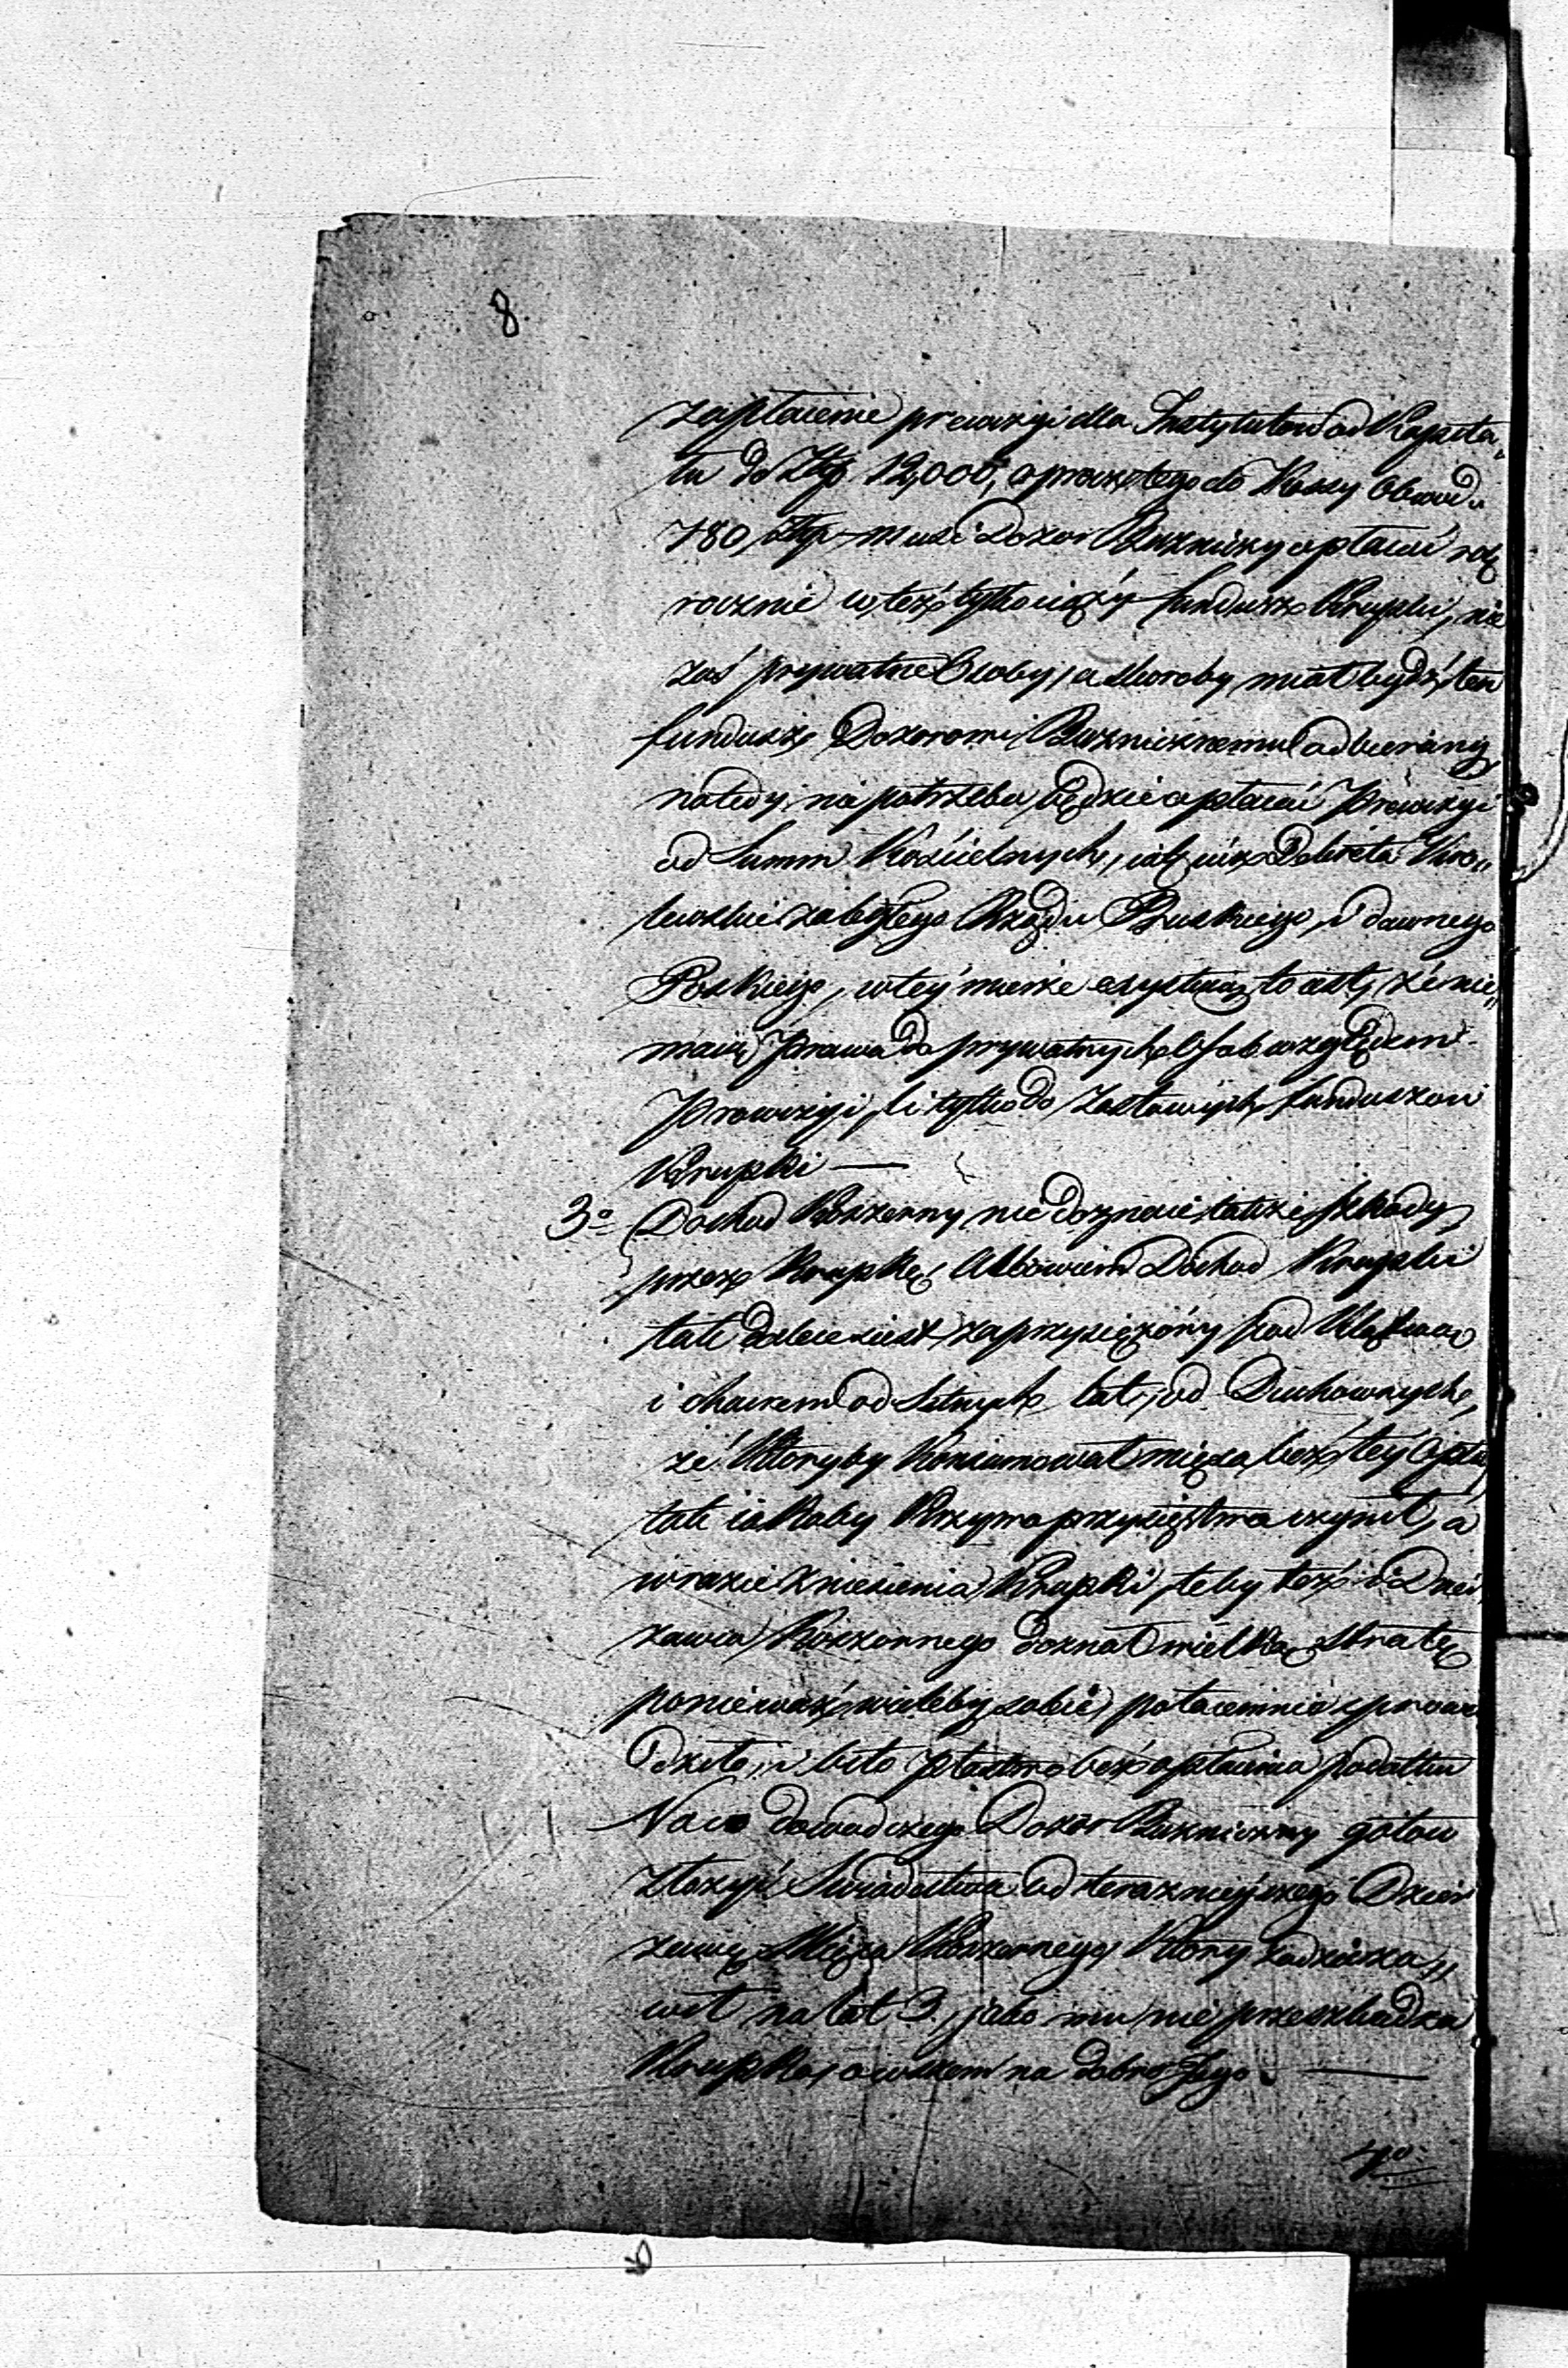 8
zapłacenie prowizyi dla Instytutow od Kapita„
łu do Złtp 12,000, oprocz tego do Kassy Obwodu
780 złtp musi Dozor Buzniczny opłacać rok
rocznie w też tylko ciąży fundusz Krupki, nie
zaś prywatne Osoby, a skoroby miał bydź ten
fundusz Dozorowi Buznicznemu odbierany
natedy nie potrzebu będzie opłacać Prowizyi
od Summ Kościelnych, iak iuż Dekreta Kro„
lewskie zabyłego Rządu Pruskiego, i dawnego
Polskiego, w tey mierze exystuią to iest, że nie„
maią Prawa do prywatnych Osob względem
Prowizyi, li tylko do zastawnych funduszow
Krupki —
3o Dochod Koszerny nie doznaie także szkody
przez Krupkę Albowiem Dochod Krupki
tak dalece iest zaprzysiężony pod Klątwą
i chairem od setnych lat, od Duchownych,
że Ktoryby Konsumował mięsa bez tey Opłaty
tak iakoby Krzywoprzysięstwa czynił, a
w razie zniesienia Krupki, teby też i Dzier
zawca Koszernego doznał wielką stratę
ponieważ wieleby sobie potaiemnie sprowa
dziło, i biło ptastwo bez opłacenia podatku
Na co dowod czego Dozor Buzniczny gotow
złożyć Swiadectwa od teraznieyszego Dzier
zawcy Mięsa Koszernego, Ktory zadzierza„
wił na lat 3., jako mu nie przeszkadza
Krupka, owszem na dobro Jego. —
4o